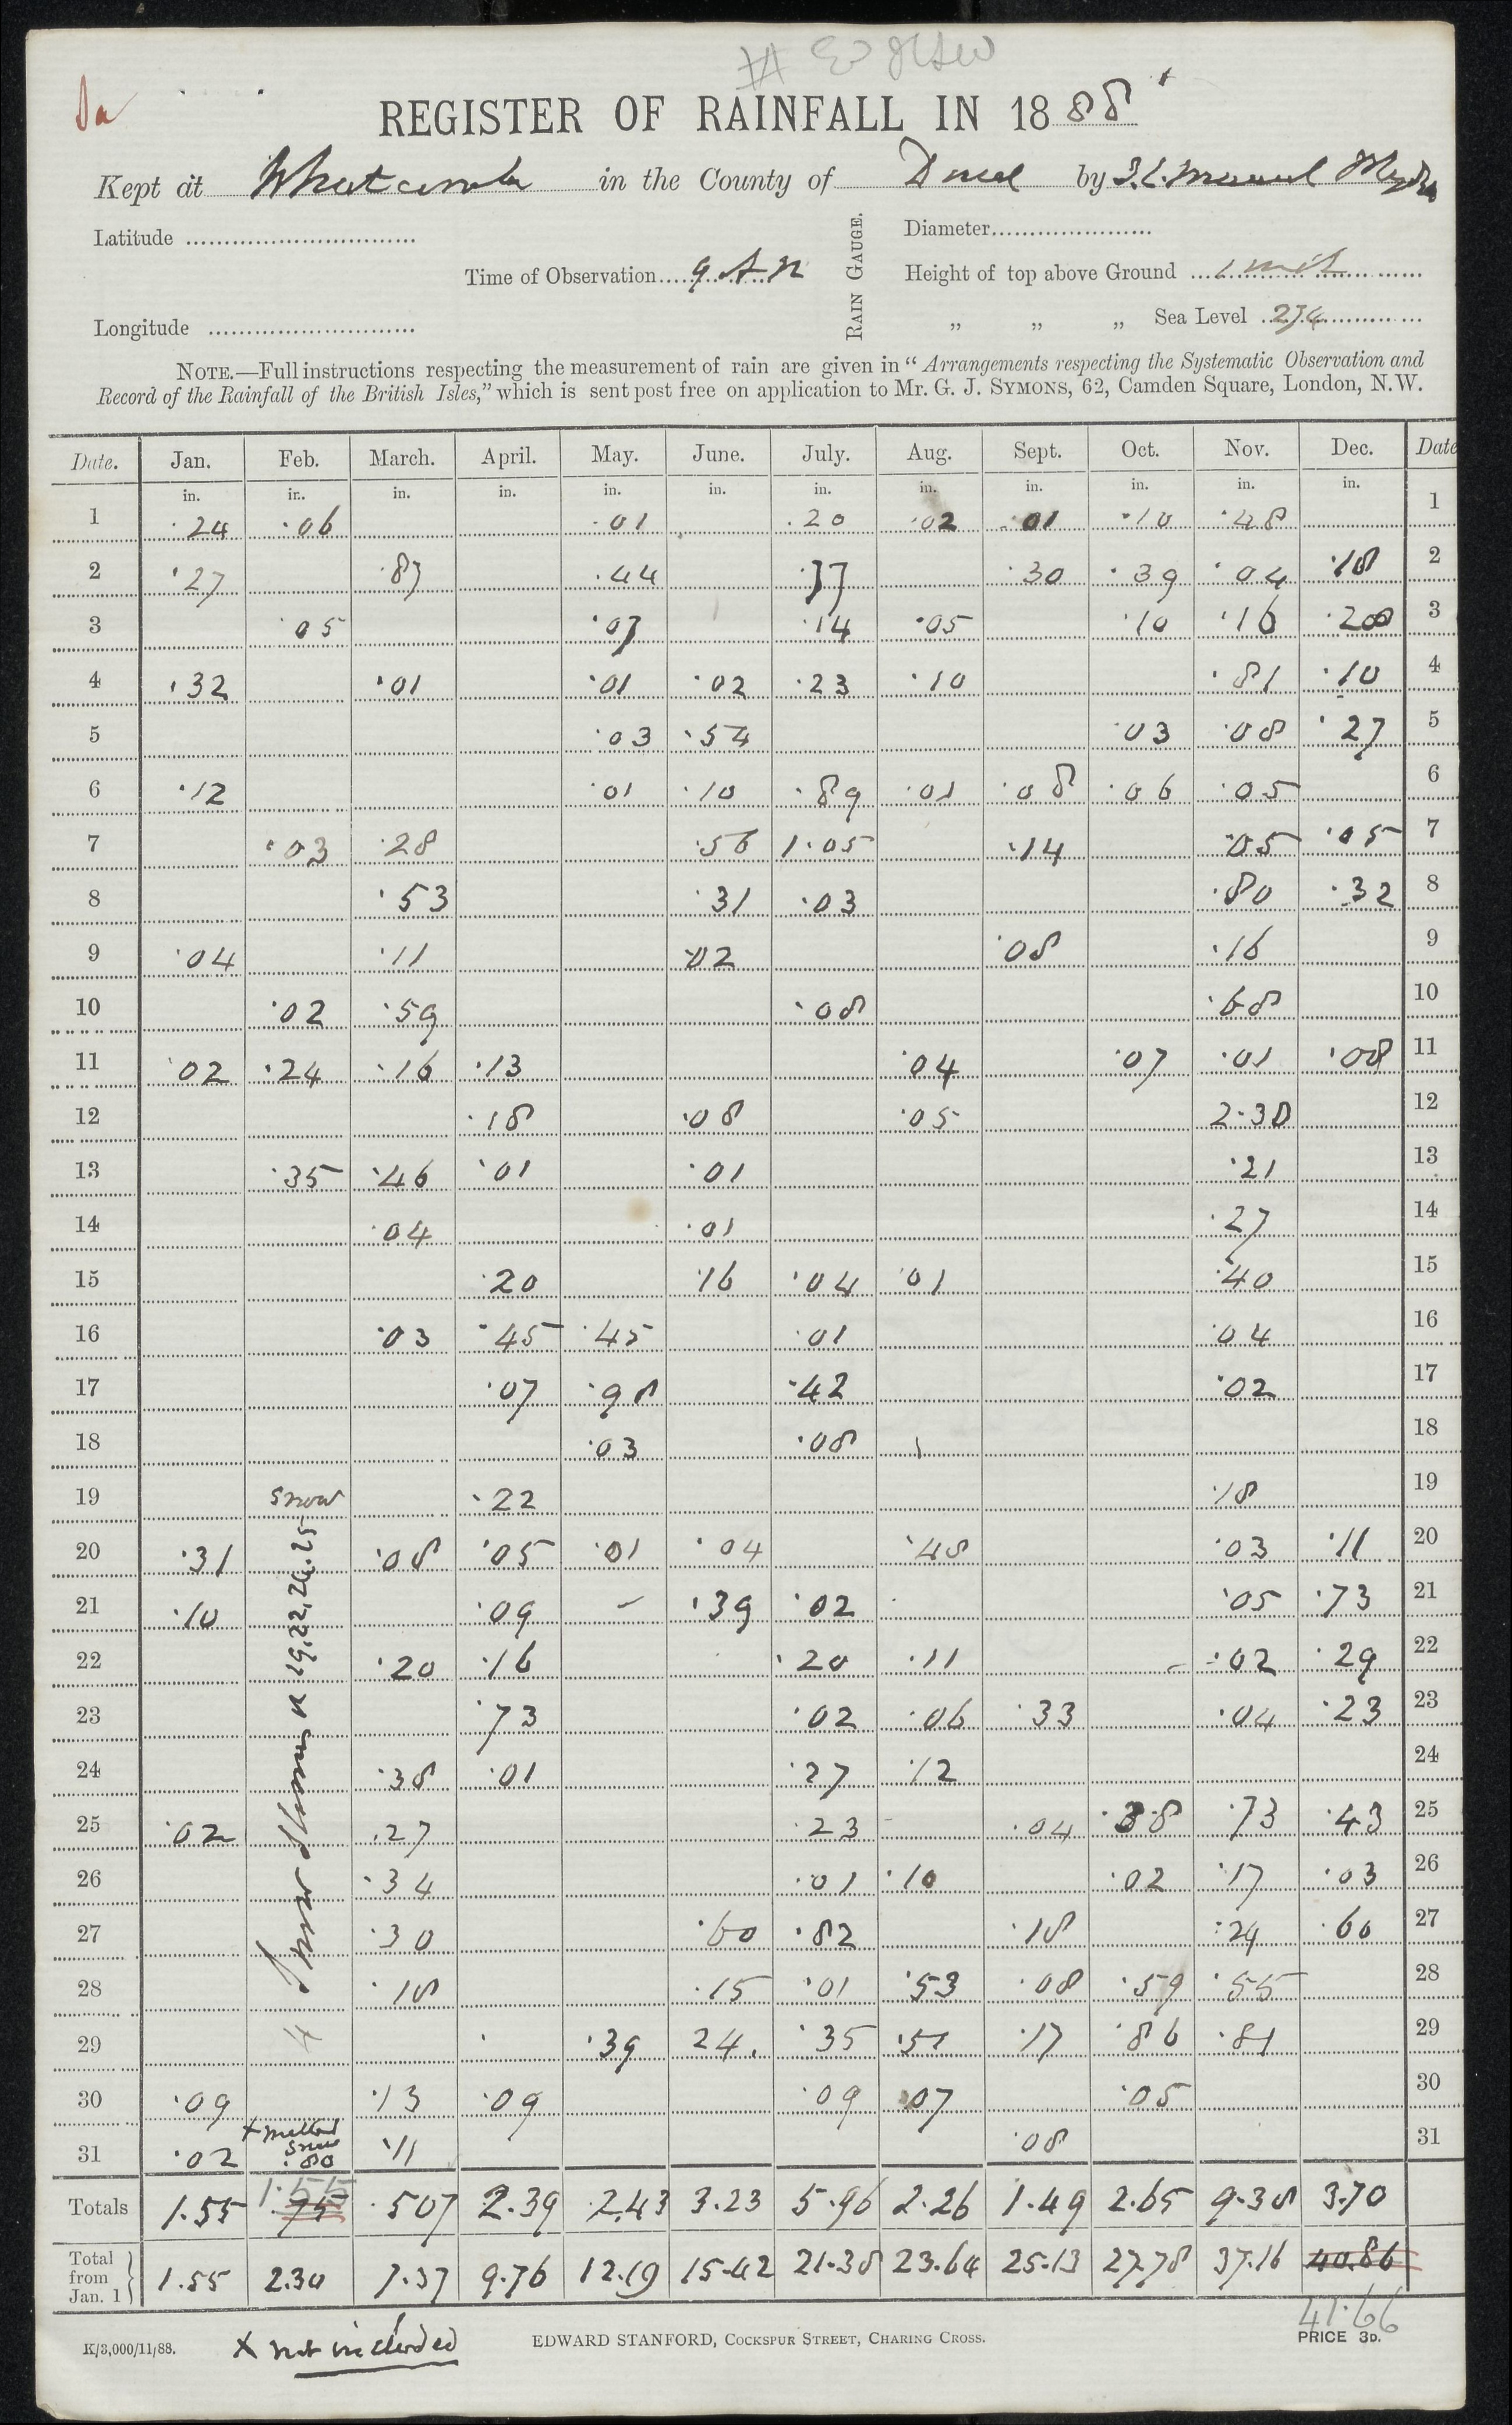 REGISTER OF RAINFALL IN 1888
Kept at Whatcombe in the County of Dorset by
Latitude
Diameter
Time of Observation 9 A.M
RAIN GAUGE.
Height of top above Ground 1
Longitude
„ „ „ Sea Level 274
NOTE.—Full instructions respecting the measurement of rain are given in "Arrangements respecting the Systematic Observation and
Record of the Rainfall of the British Isles," which is sent post free on application to Mr. G. J. SYMONS, 62, Camden Square, London, N.W.
Date. Jan. Feb. March. April. May. June. July. Aug. Sept. Oct. Nov. Dec. Date
in. in. in. in. in. in. in. in. in. in. in. in.
1 .24 .06 .01 .20 .02 .01 .10 .48 1
2 .27 .87 .44 .37 .30 .39 .04 .18 2
3 .05 .07 .14 .05 .10 .16 .20 3
4 .32 .01 .01 .02 .23 .10 .81 .10 4
5 .03 .54 .03 .08 .27 5
6 .12 .01 .10 .89 .01 .08 .06 .05 6
7 .03 .28 .56 1.05 .14 .05 .05 7
8 .53 .31 .03 .80 .32 8
9 .04 .11 .02 .08 .16 9
10 .02 .59 .08 .68 10
11 .02 .24 .16 .13 .04 .07 .01 .08 11
12 .18 .08 .05 2.30 12
13 .35 .46 .01 .01 .21 13
14 .04 .01 .27 14
15 .20 .16 .04 .01 .40 15
16 .03 .45 .45 .01 .04 16
17 .07 .98 .42 .02 17
18 .03 .08 18
19 snow .22 .18 19
20 .31 .08 .05 .01 .04 .48 .03 .11 20
21 .10 .09 – .39 .02 .05 .73 21
22 .20 .16 .20 .11 .02 .29 22
23 .73 .02 .06 .33 .04 .23 23
24 .38 .01 .27 .12 24
25 .02 .27 .23 .04 .38 .73 .43 25
26 .34 .01 .10 .02 .17 .03 26
27 .30 .60 .82 .18 .24 .60 27
28 .18 .15 .01 .53 .08 .59 .55 28
29 .39 24. .35 .51 .17 .86 .81 29
30 .09 .13 .09 .09 .07 .05 30
31 .02 .11 .08 31
Snow Storms 19, 22, 24, 25
+ melted
snow
.80
1.55
Totals 1.55 .75 .507 2.39 2.43 3.23 5.96 2.26 1.49 2.65 9.38 3.70
Total from Jan. 1 } 1.55 2.30 7.37 9.76 12.19 15.42 21.38 23.64 25.13 27.78 37.16 40.86
41.66
K/3,000/11/88.
+ not included
EDWARD STANFORD, COCKSPUR STREET, CHARING CROSS.
PRICE 3D.